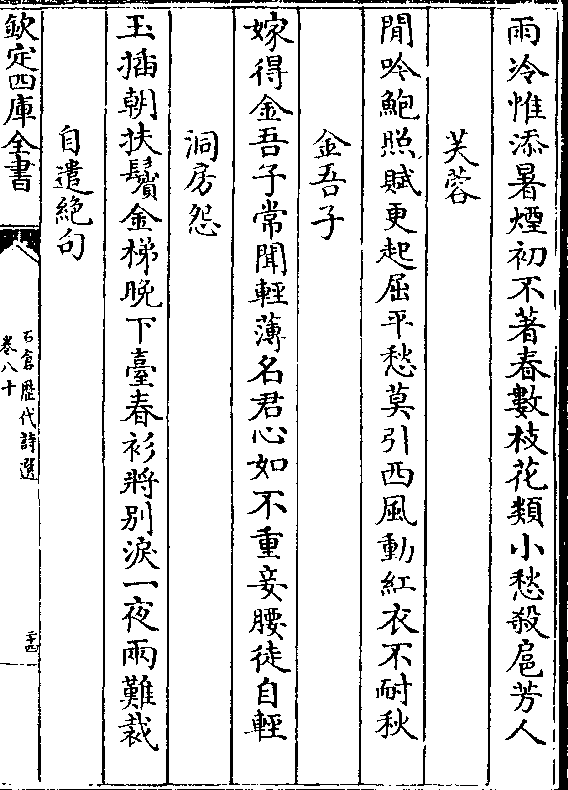 雨冷惟添暑煙初不著春數枝花類小愁殺扈芳人
芙蓉
閒吟鮑照賦更起屈平愁莫引西風動紅衣不耐秋
金吾子
嫁得金吾子常聞輕薄名君心如不重妾腰徒自輕
洞房怨
玉揷朝扶鬢金梯晚下臺春衫將別淚一夜兩難裁
自遣絕句
欽定四庫全書
石倉歷代詩選
卷八十
二十四